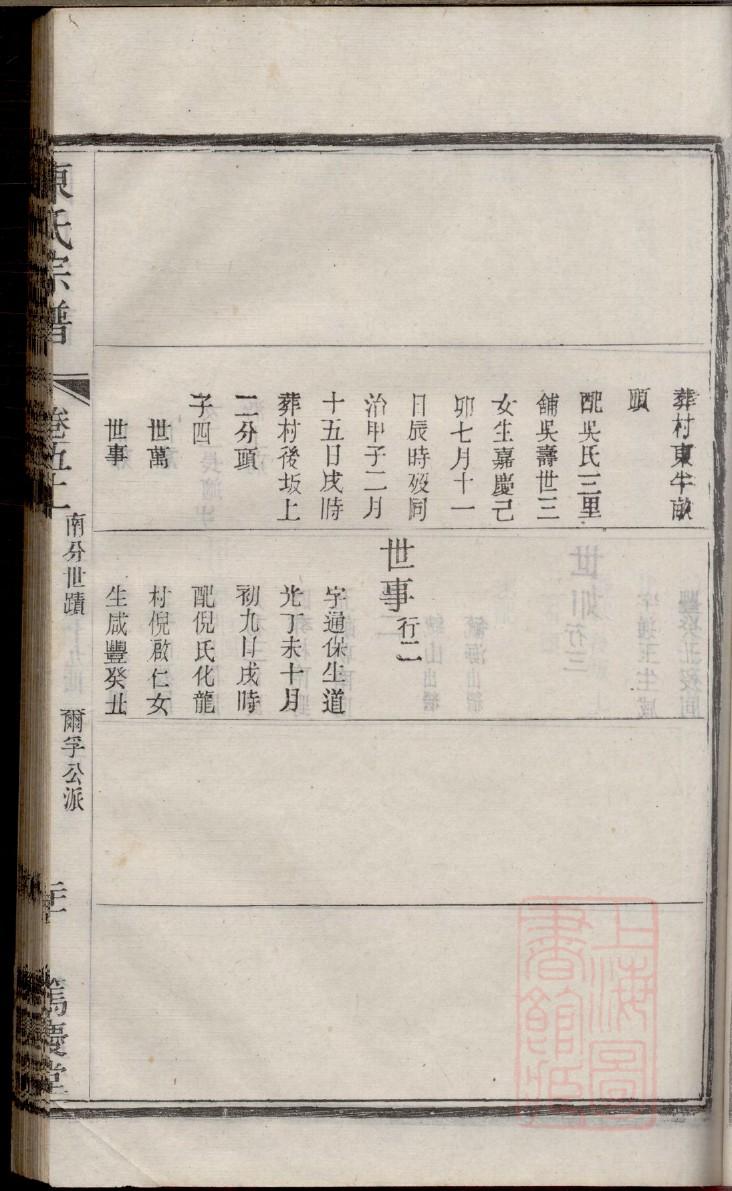 葬村東牛畝
頭
配吳氏三里
舖吳壽世三
女生嘉慶己
卯七月十一
日辰時歿同
治甲子二月
十五日戌時
葬村後坂上
二分頭
子四
世萬
世事
世事行二
字通保生道
光丁未十月
初九日戌時
配倪氏化龍
村倪啟仁女
生咸豐癸丑
陳氏宗譜
卷五十
南分世蹟
爾孚公派
篤慶堂
上海圖
書館藏